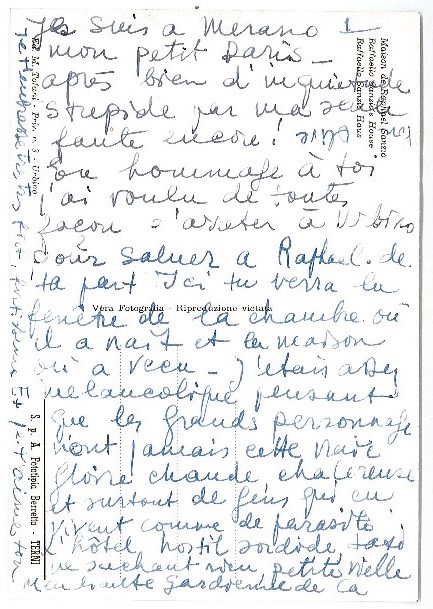 Je suis a Merano
mon petit Paris
apres bien d'inquietude
stupide par ma seule
faute encore!
En hommage à toi
j'ai voulu de toutes
façon s'arreter à Urbino
pour saluer a Raphael. de
ta part Ici tu verra la
fenêtre de la chambre où
il a nait et la maison
où a vecu - J'etais assez
melancolique pensant
que les grands personnage
n'ont jamais cette vraie
gloire chaude chalereuse
et surtout de gens qui en
vivent comme de parasite
L'hôtel hostil sordide,
ne sachant rien petite vielle
mechante gardienne de ca
1
Maison de Raphael Sanzio
Raffaello Sanzio's House
Raffaello Sanzio Haus
Ed. M. Tofani - Priv. n. 3 - Urbino
Vera Fotografia - Riproduzione vietata
S. p. A. Fototipia Berretta - TERNI
Je t'embrasse très fort, Et je t'aime ton